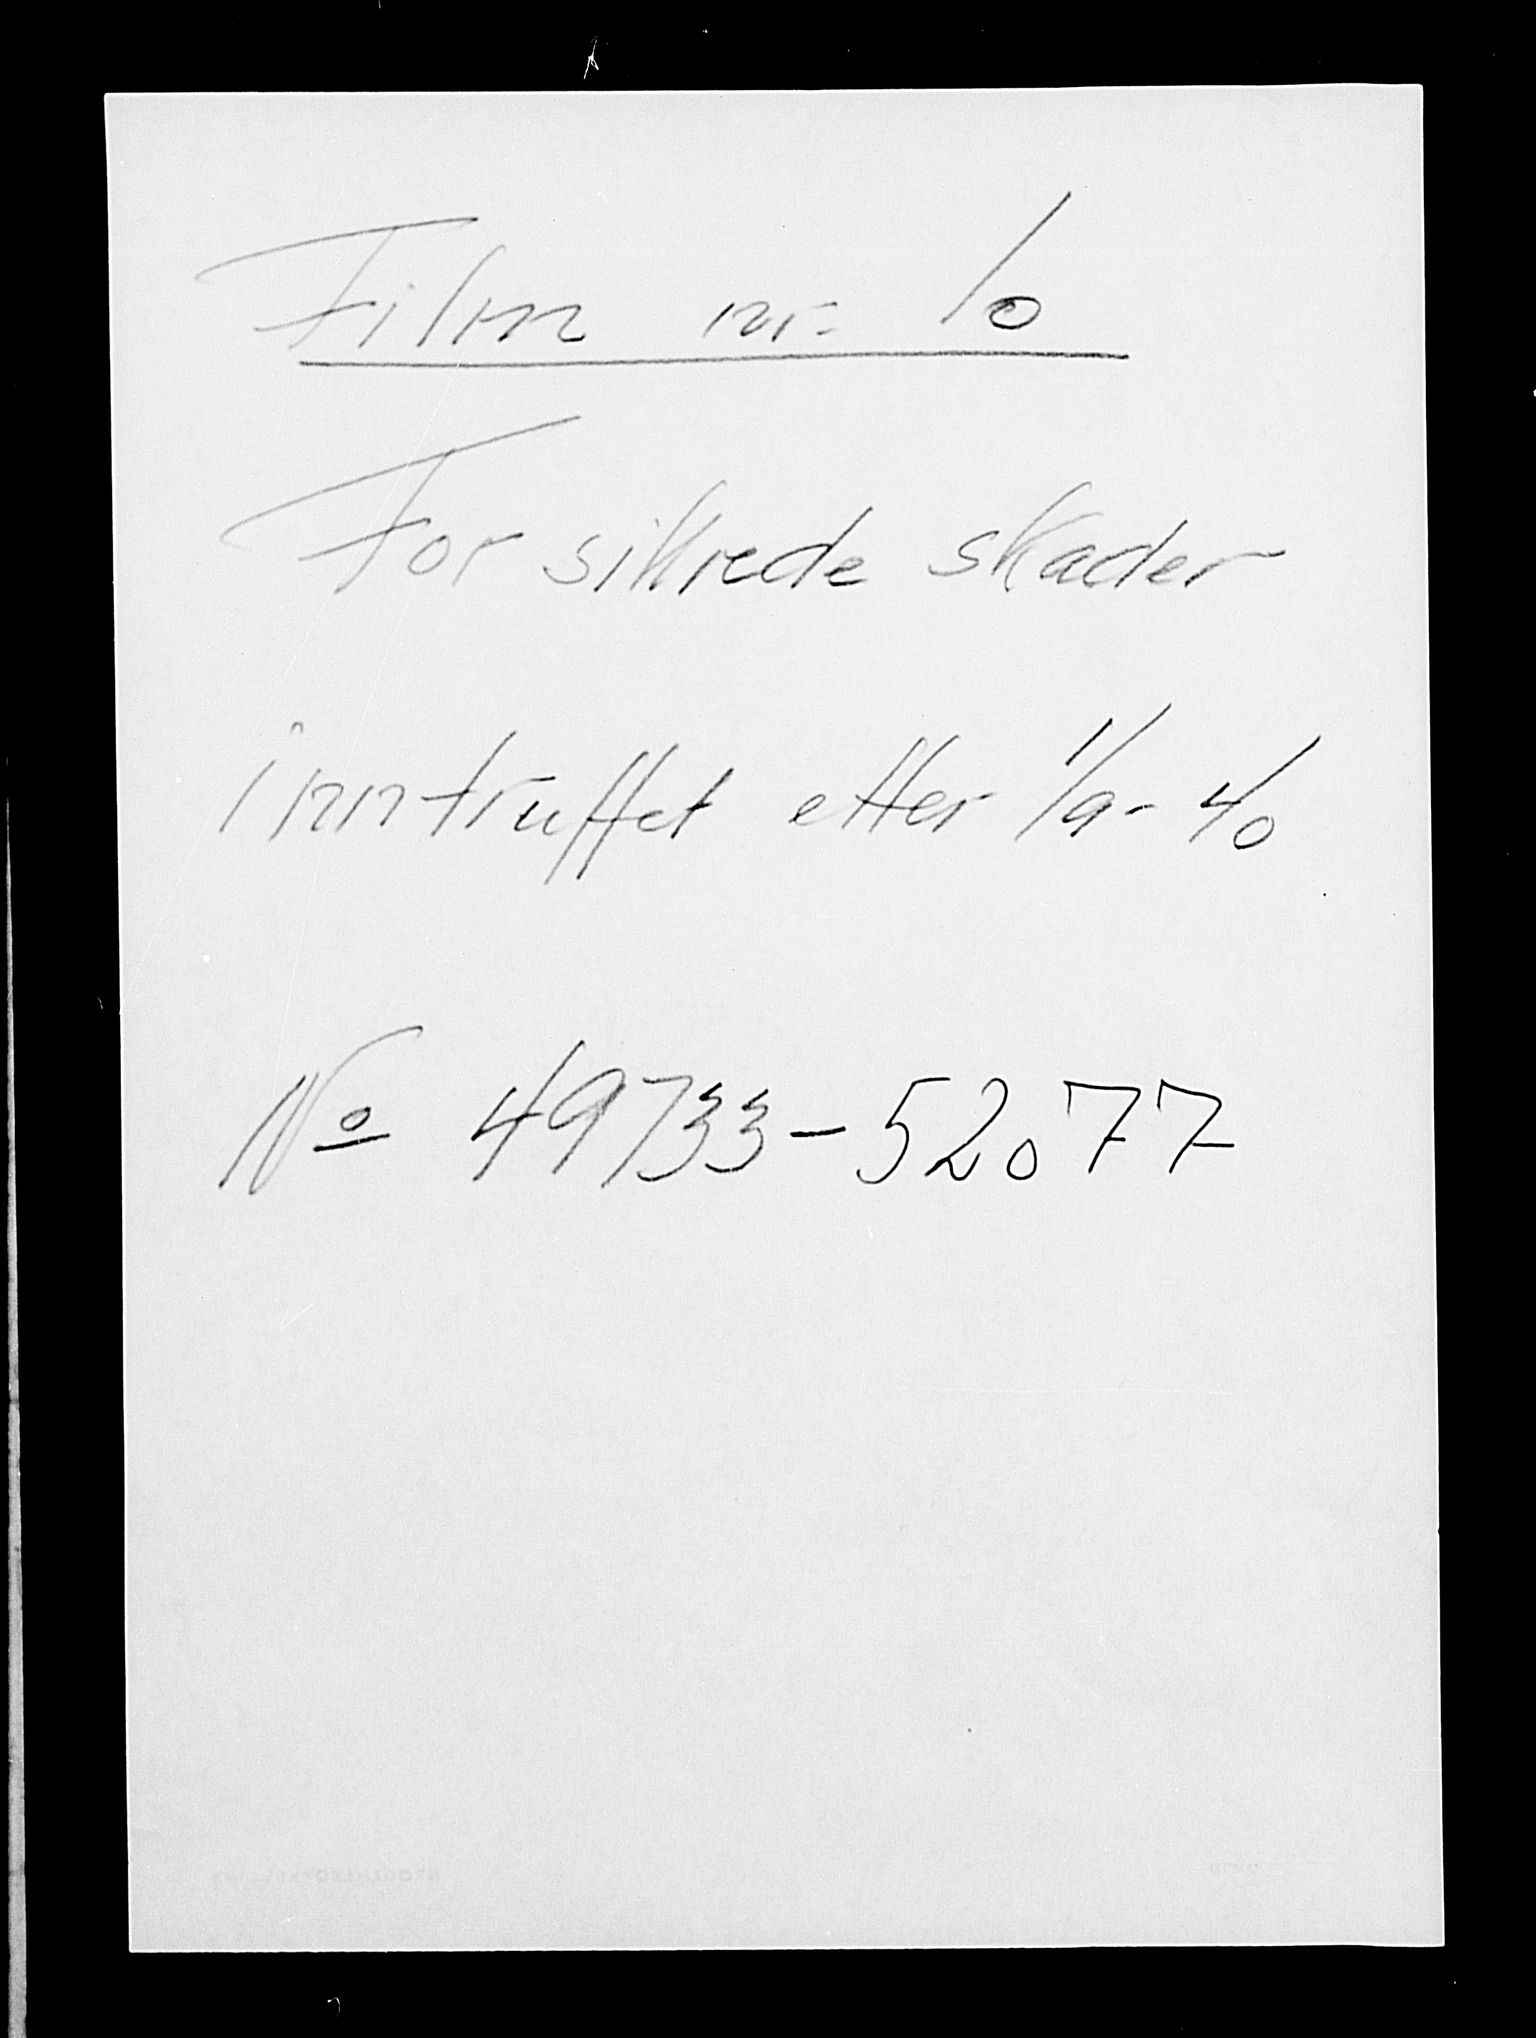 Film nr. 10
Forsikrede skader
inntruffet etter 1/9-40
No 49733-52077